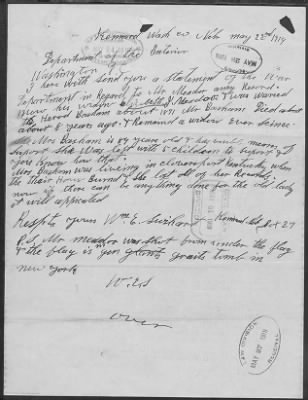 Kennard Wash co Neb may 22nd 1919
Department of the Interior
Washington
I here With Send you a Statement of the War
Department in Regard to Mr Meador and Record.
Now his widow Elizabeth Meador Then married
to Record Basham about 1871 Mr Basham Died about
about 8 years ago & Remained a widow Ever Since
Mrs Basham is 84 year old & has no means of
Support She Was Left with 5 Children to Support &
you Know how that.
Mrs Basham was Living in Cloverport Kentucky when
the their House Burned & She Lost all of her Records
now is there can be anything done for the old lady
it will appreciated
Respt yours Wm E. Swihart Kennard Neb Box 27
P.S. Mr meador was Shot from under the flag
& the flag is in gen grants tomb in
new york
W.E.S
over
LAW DIVISION
MAY 27 1919